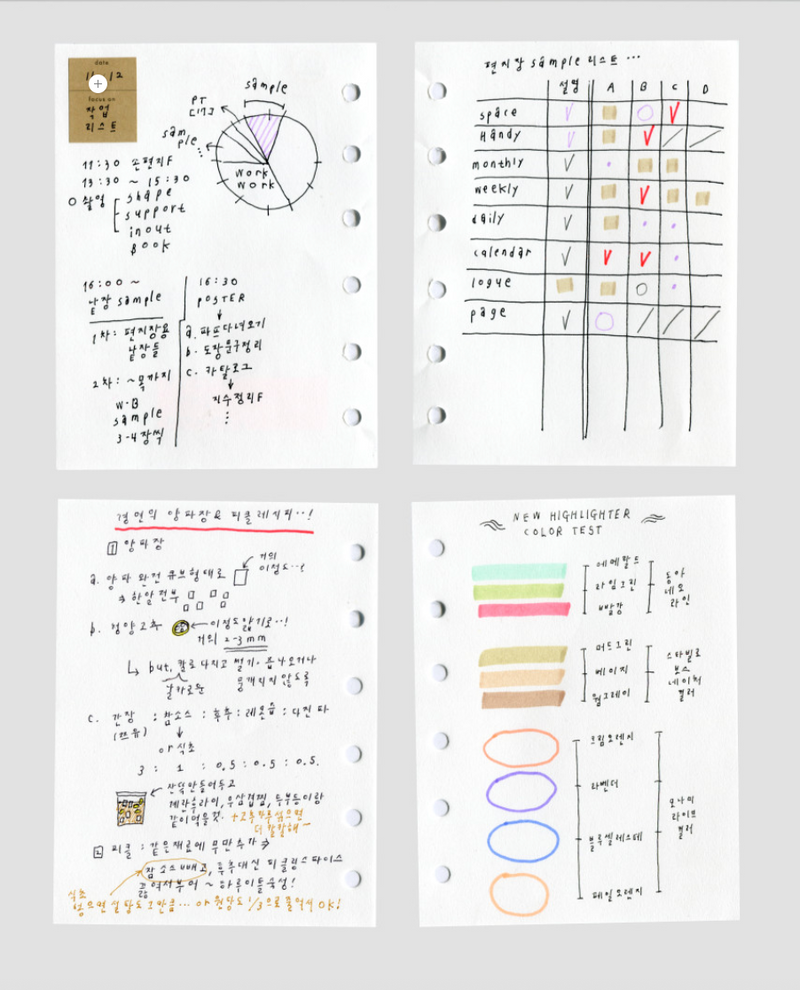 date
11 12
focus on
작업
리스트
sample
PT
sam
ple
work
work
11:30 손편지F
13:30 ~ 15:30
촬영
shape
support
inout
book
16:00 ~
낱장 sample
1차: 편지장용
낱장들
2차: ~목까지
W-B
sample
3-4장씩
16:30
POSTER
a. 파쁘다녀오기
b. 도장문구정리
c. 카탈로그
지수정리F
편지장 sample 리스트 ...
설명 A B C D
space
Handy
monthly
weekly
daily
calendar
logue
page
결면의 양파장 & 피클레시피..!
1 양파장
a. 양파 완전 큐브형태로
거의
이정도..!
한알전부
b. 청양고추
이정도얇기로..!
거의 2-3mm
but, 칼로 다지고 썰기. 즙 나오거나
날카로운 뭉개지지 않도록
c. 간장 : 참소스 : 후추 : 레몬즙 : 다진 파
or 식초
3 : 1 : 0.5 : 0.5 : 0.5.
잔뜩만들어두고
계란후라이, 우삼겹찜, 두부등이랑
같이먹을것.
더 칼칼해~
2 피클 : 같은재료에 무만추가
참소스 빼고, 후추대신 피클링스파이스
끓여서부어 ~ 하루이틀숙성!
식초
넣으면 설탕도 그만큼... or 원당도 1/3으로 줄여서 OK!
NEW HIGHLIGHTER
COLOR TEST
에메랄드
라임그린
빨강
동아
네오
라인
머드그린
베이지
웜그레이
스타빌로
보스
네이처
컬러
크림오렌지
라벤더
블루셀레스테
페일오렌지
모나미
라이브
컬러